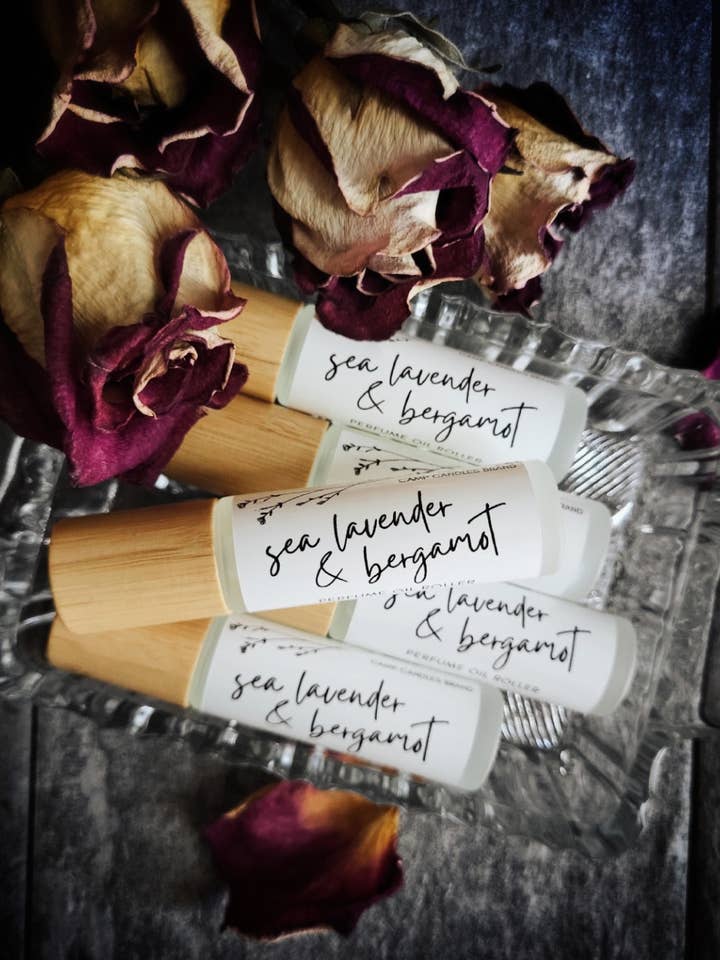 sea lavender
& bergamot
PERFUME OIL ROLLER
CAMP CANDLES BRAND
sea lavender
& bergamot
PERFUME OIL ROLLER
BRAND
sea lavender
& bergamot
PERFUME OIL ROLLER
CAMP CANDLES BRAND
sea lavender
& bergamot